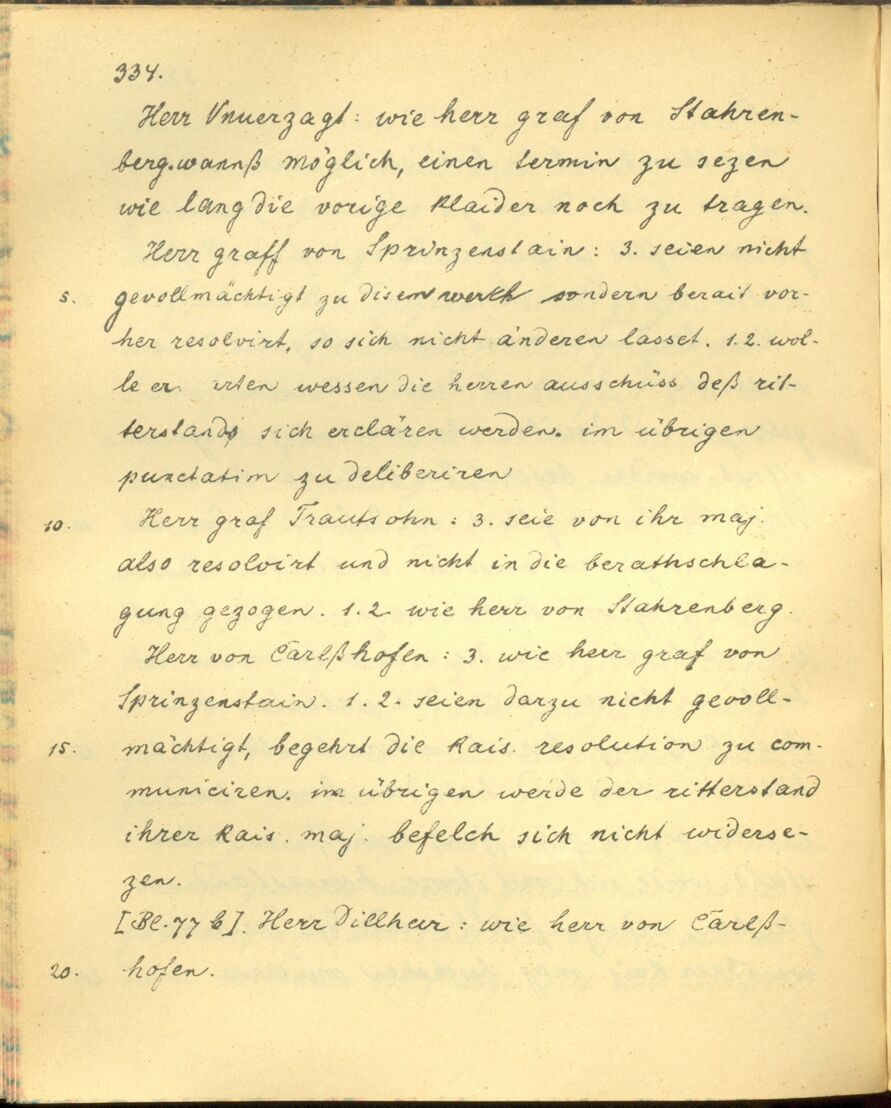 334.
Herr Vnuerzagt: wie herr graf von Stahren-
berg. wannß möglich, einen termin zu sezen
wie lang die vorige klaider noch zu tragen.
Herr graff von Sprinzenstain: 3. seien nicht
5. gevollmächtigt zu disem werkh sondern berait vor-
her resolvirt, so sich nicht änderen lasset. 1.2. wol-
le er wessen die herren ausschüss deß rit-
terstands sich erclären werden. im übrigen
punctatim zu deliberiren
10. Herr graf Trautsohn: 3. seie von ihr maj.
also resolvirt und nicht in die berathschla-
gung gezogen. 1.2 wie herr von Stahrenberg.
Herr von Carlßhofen: 3. wie herr graf von
Sprinzenstain. 1. 2. seien darzu nicht gevoll-
15. mächtigt, begehrt die kais. resolution zu com-
municiren. im übrigen werde der ritterstand
ihrer kais. maj. befelch sich nicht widerse-
zen.
[Bl. 77 b]. Herr Dillherr: wie herr von Carlß-
20. hofen.